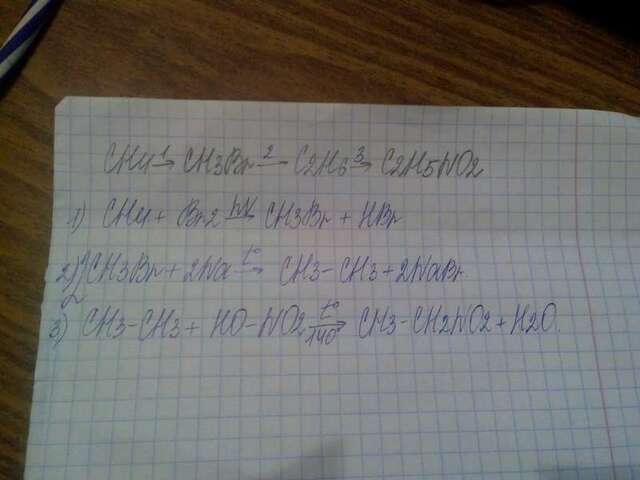 CH4 1→ CH3Br 2→ C2H6 3→ C2H5NO2
1) CH4 + Br2 hν→ CH3Br + HBr
2) 2CH3Br + 2Na t°→ CH3-CH3 + 2NaBr
3) CH3-CH3 + HO-NO2 t° 140°→ CH3-CH2NO2 + H2O.